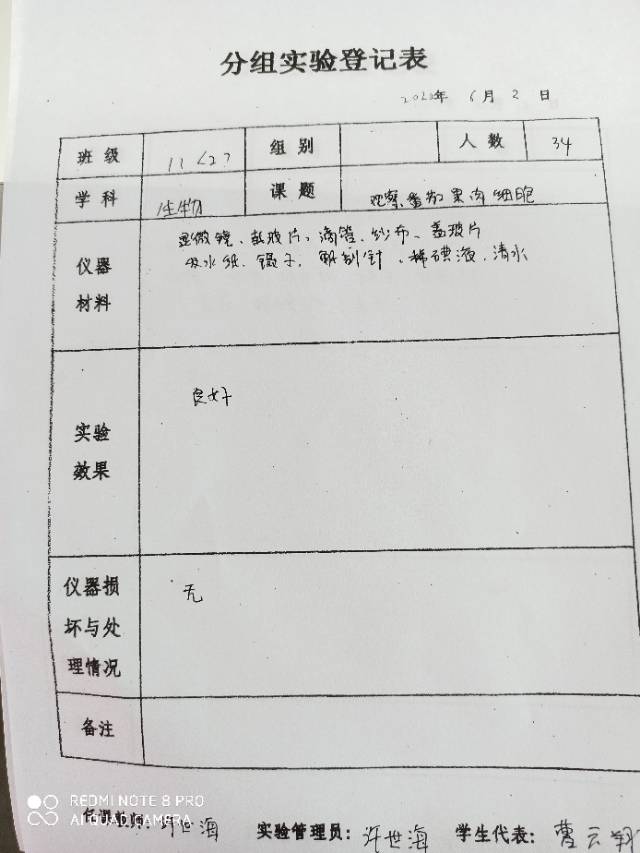 分组实验登记表
2020年 6月 2 日
班级 11<2> 组别 人数 34
学科 生物 课题 观察番茄果肉细胞
仪器材料 显微镜、载玻片、滴管、纱布、盖玻片
吸水纸、镊子、解剖针、稀碘液、清水
实验效果 良好
仪器损坏与处理情况 无
备注
任课教师：许世海 实验管理员：许世海 学生代表：曹云翔
REDMI NOTE 8 PRO
AI QUAD CAMERA